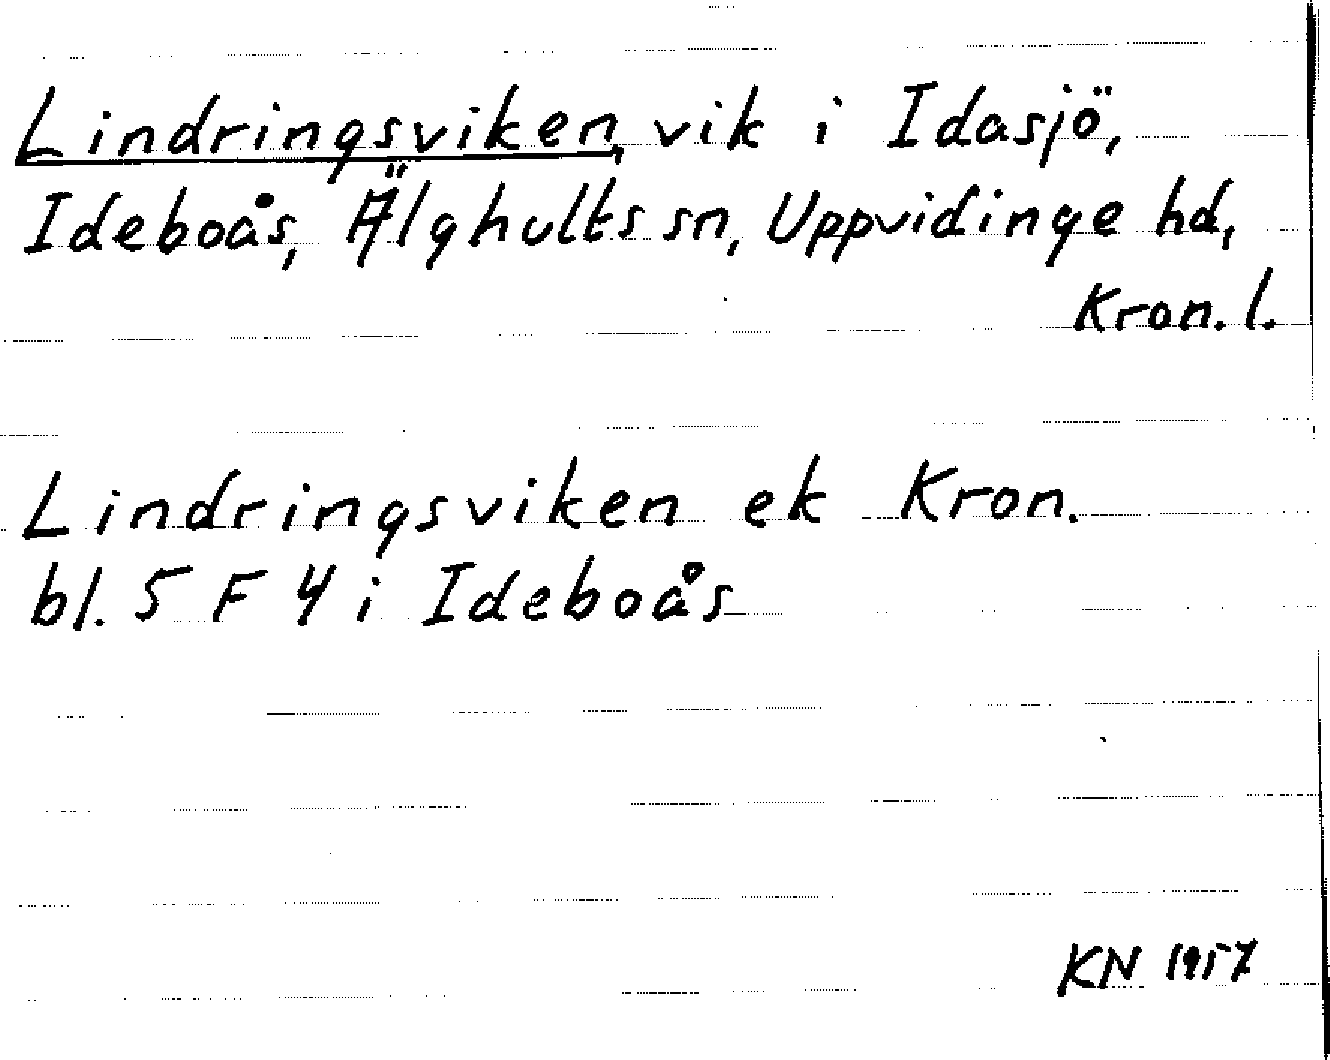 Lindringsviken, vik i Idasjö,
Ideboås, Älghults sn, Uppvidinge hd,
Kron. l.
Lindringsviken ek Kron.
bl. 5 F 4 i Ideboås
KN 1957